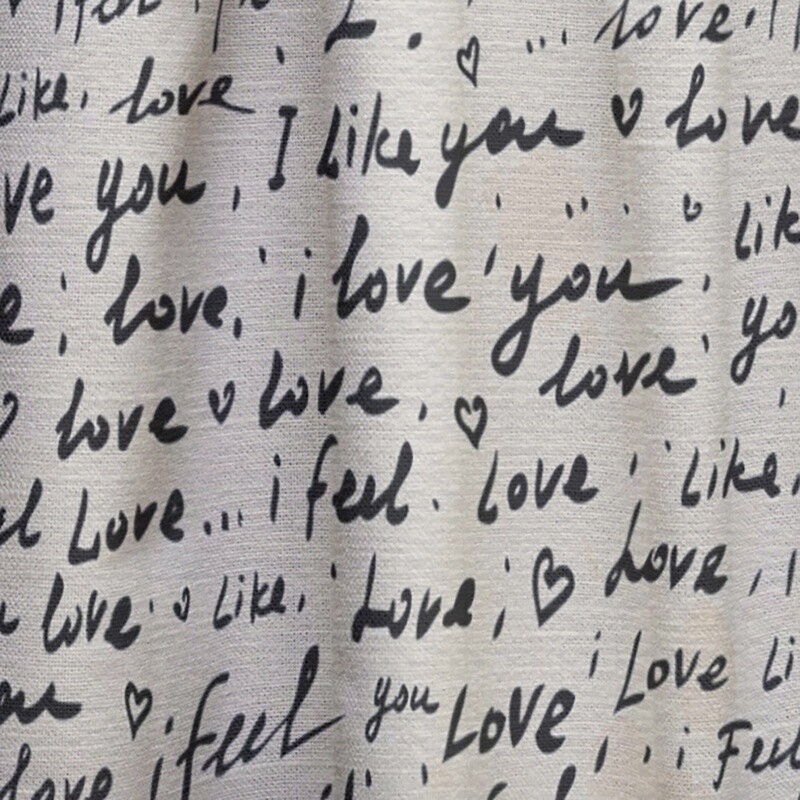 love.
Like, love
I Like you ♡ love
ve you,
Lik
e, love, i love you,
yo
♡ love ♡ love, ♡ love
Love... i feel. Love, Like,
love ♡ Like, Love, ♡ Love,
♡ i feel you Love i Love Li
love i Feel